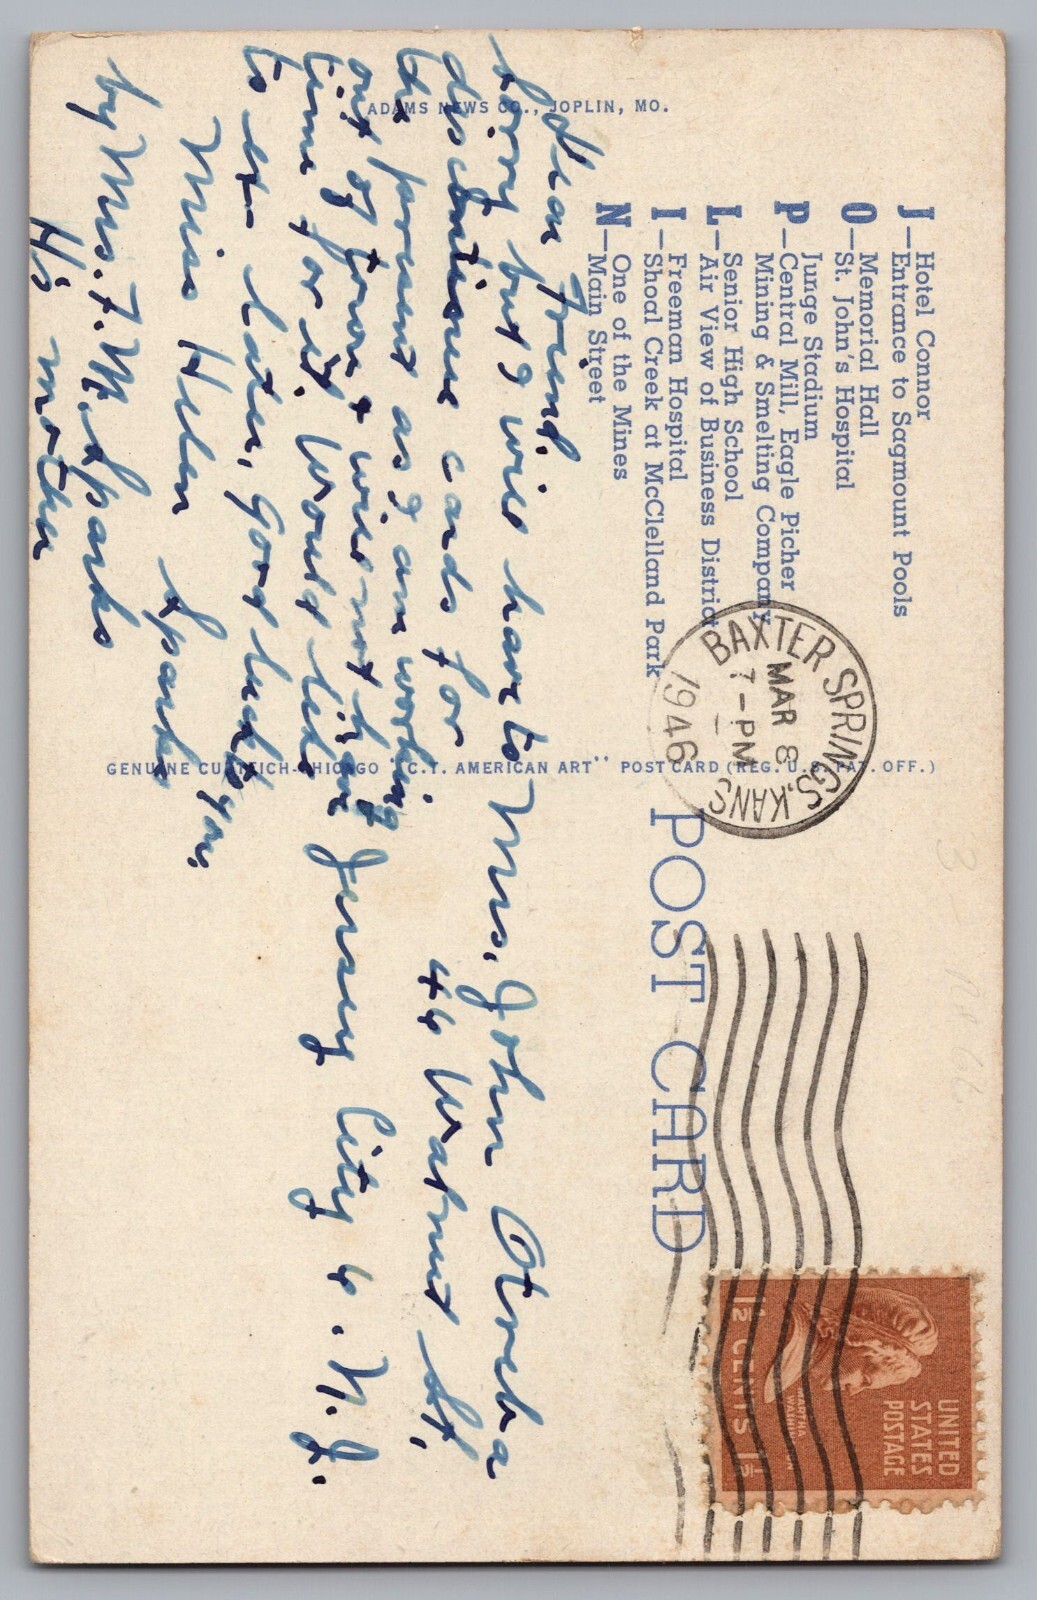 J—Hotel Connor
Entrance to Sagmount Pools
O—Memorial Hall
St. John's Hospital
Junge Stadium
P—Central Mill, Eagle Picher
Mining & Smelting Company
Senior High School
L—Air View of Business District
Freeman Hospital
I—Shoal Creek at McClelland Park
One of the Mines
N—Main Street
ADAMS NEWS CO., JOPLIN, MO.
GENUINE CURTEICH-CHICAGO "C.T. AMERICAN ART" POST CARD (REG. U.S. PAT. OFF.)
BAXTER SPRINGS, KANS
MAR 8
7-PM
1946
POST CARD
UNITED
STATES
POSTAGE
MARTHA
WASHINGTON
1½ CENTS 1½
Dear Friend.
Sorry but I will have to
discontinue cards for
the present as I am working
out of town & will not have
time for it. Would like
to ex later, Good luck to you.
Miss Helen Sparks
by Mrs. F. M. Sparks
His mother
Mrs. John Otreba
46 Walnut St.
Jersey City 6. N. J.